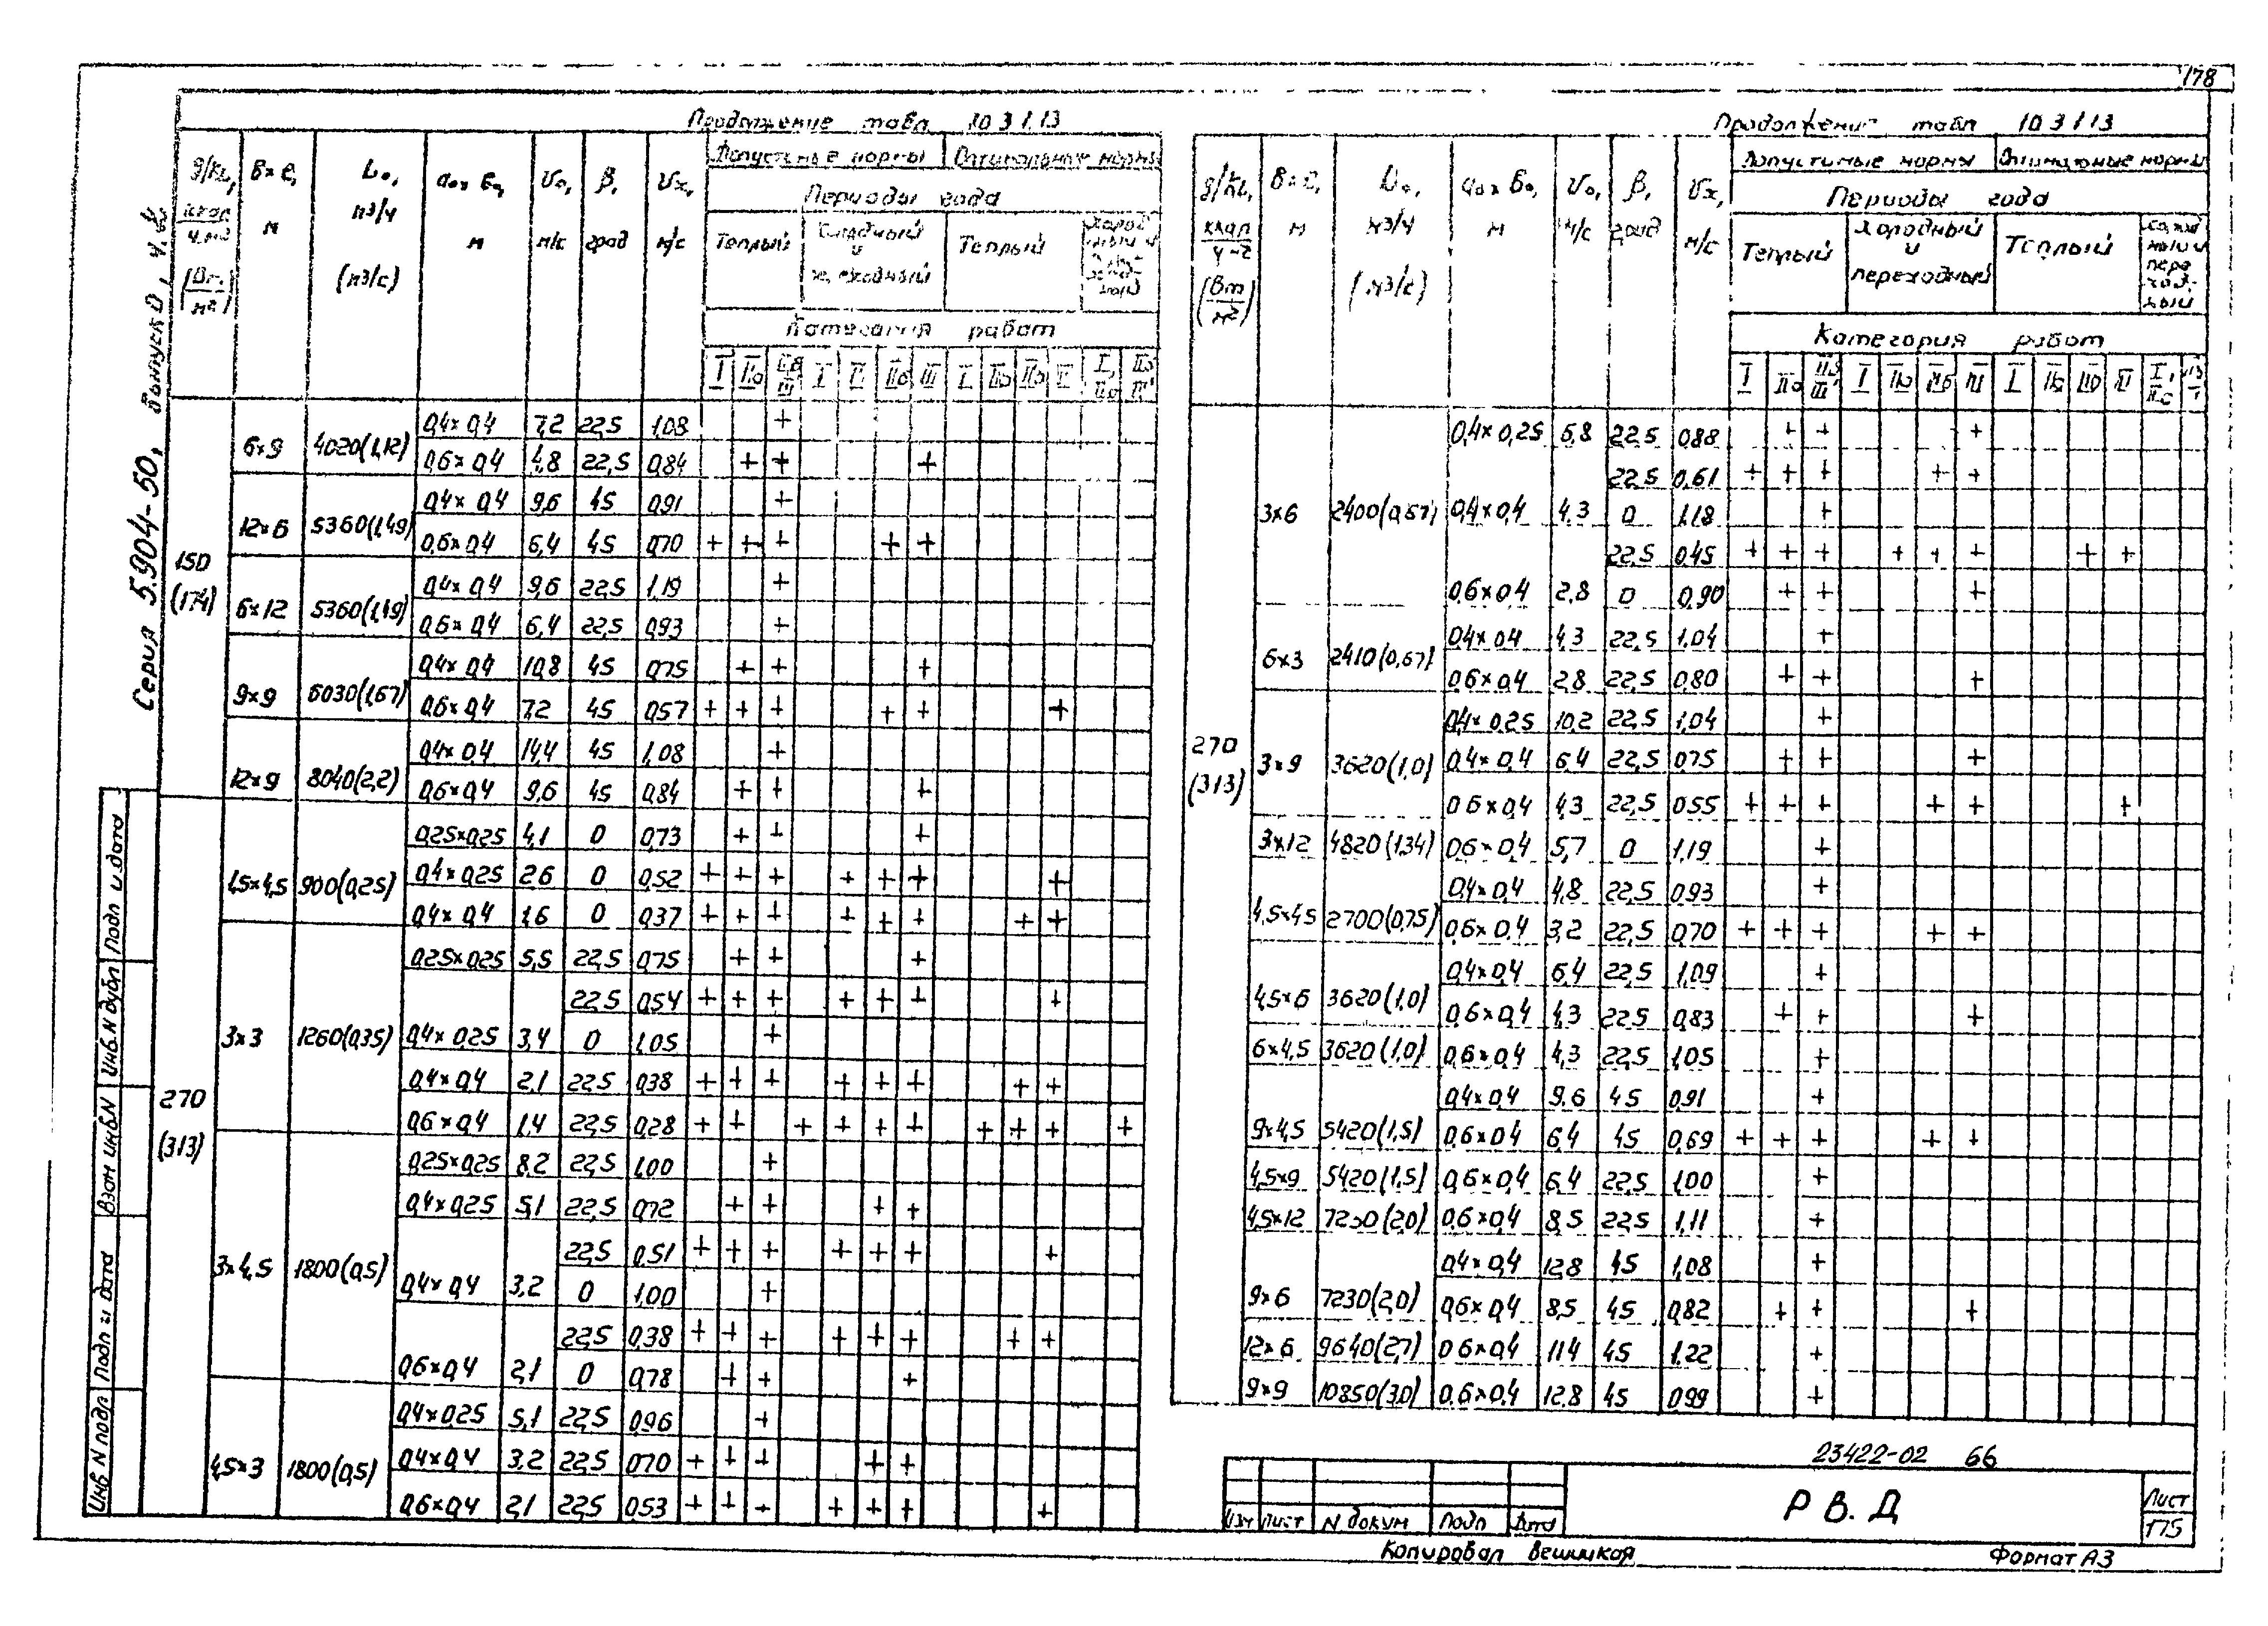 178
Серия 5.904-50, выпуск 0, ч. 4
Продолжение табл 10 3 1.13
g/kL, ккал/ч.м2 (Вт/м2) | в×е, м | L₀, м3/ч (м3/с) | a₀×в₀, м | v₀, м/с | β, град | vx, м/с | Допустимые нормы | Оптимальные нормы
Периоды года
Теплый | Холодный и переходный | Теплый | Холодный и переходный
Категория работ
I | IIа | IIб, III | I | IIа | IIб | III | I | IIа | IIб | III | I, IIа | IIб, III
150 (174)
6×9 | 4020(1,12) | 0,4×0,4 | 7,2 | 22,5 | 1,08 | +
0,6×0,4 | 4,8 | 22,5 | 0,84 | + + +
12×6 | 5360(1,49) | 0,4×0,4 | 9,6 | 45 | 0,91 | +
0,6×0,4 | 6,4 | 45 | 0,70 | + + + + +
6×12 | 5360(1,49) | 0,4×0,4 | 9,6 | 22,5 | 1,19 | +
0,6×0,4 | 6,4 | 22,5 | 0,93 | +
9×9 | 6030(1,67) | 0,4×0,4 | 10,8 | 45 | 0,75 | + + +
0,6×0,4 | 7,2 | 45 | 0,57 | + + + + + +
12×9 | 8040(2,2) | 0,4×0,4 | 14,4 | 45 | 1,08 | +
0,6×0,4 | 9,6 | 45 | 0,84 | + + +
270 (313)
4,5×4,5 | 900(0,25) | 0,25×0,25 | 4,1 | 0 | 0,73 | + + +
0,4×0,25 | 2,6 | 0 | 0,52 | + + + + + + +
0,4×0,4 | 1,6 | 0 | 0,37 | + + + + + + + +
3×3 | 1260(0,35) | 0,25×0,25 | 5,5 | 22,5 | 0,75 | + + +
22,5 | 0,54 | + + + + + + +
0,4×0,25 | 3,4 | 0 | 1,05 | +
0,4×0,4 | 2,1 | 22,5 | 0,38 | + + + + + + + +
0,6×0,4 | 1,4 | 22,5 | 0,28 | + + + + + + + + + +
3×4,5 | 1800(0,5) | 0,25×0,25 | 8,2 | 22,5 | 1,00 | +
0,4×0,25 | 5,1 | 22,5 | 0,72 | + + + +
22,5 | 0,51 | + + + + + + +
0,4×0,4 | 3,2 | 0 | 1,00 | +
22,5 | 0,38 | + + + + + + + +
0,6×0,4 | 2,1 | 0 | 0,78 | + + +
4,5×3 | 1800(0,5) | 0,4×0,25 | 5,1 | 22,5 | 0,96 | +
0,4×0,4 | 3,2 | 22,5 | 0,70 | + + + + +
0,6×0,4 | 2,1 | 22,5 | 0,53 | + + + + + + +
Продолжение табл 10 3 1 13
g/kL, ккал/ч м2 (Вт/м2) | в×е, м | L₀, м3/ч (м3/с) | a₀×в₀, м | v₀, м/с | β, град | vx, м/с | Допустимые нормы | Оптимальные нормы
Периоды года
Теплый | Холодный и переходный | Теплый | Холодный и переходный
Категория работ
I | IIа | IIб III | I | IIа | IIб | III | I | IIа | IIб | III | I, IIа | IIб III
270 (313)
3×6 | 2400(0,67) | 0,4×0,25 | 6,8 | 22,5 | 0,88 | + + +
22,5 | 0,61 | + + + + +
0,4×0,4 | 4,3 | 0 | 1,18 | +
22,5 | 0,45 | + + + + + + + +
0,6×0,4 | 2,8 | 0 | 0,90 | + + +
6×3 | 2410(0,67) | 0,4×0,4 | 4,3 | 22,5 | 1,04 | +
0,6×0,4 | 2,8 | 22,5 | 0,80 | + + +
3×9 | 3620(1,0) | 0,4×0,25 | 10,2 | 22,5 | 1,04 | +
0,4×0,4 | 6,4 | 22,5 | 0,75 | + + +
0,6×0,4 | 4,3 | 22,5 | 0,55 | + + + + + +
3×12 | 4820(1,34) | 0,6×0,4 | 5,7 | 0 | 1,19 | +
4,5×4,5 | 2700(0,75) | 0,4×0,4 | 4,8 | 22,5 | 0,93 | +
0,6×0,4 | 3,2 | 22,5 | 0,70 | + + + + +
4,5×6 | 3620(1,0) | 0,4×0,4 | 6,4 | 22,5 | 1,09 | +
0,6×0,4 | 4,3 | 22,5 | 0,83 | + + +
6×4,5 | 3620(1,0) | 0,6×0,4 | 4,3 | 22,5 | 1,05 | +
9×4,5 | 5420(1,5) | 0,4×0,4 | 9.6 | 45 | 0,91 | +
0,6×0,4 | 6,4 | 45 | 0,69 | + + + + +
4,5×9 | 5420(1,5) | 0,6×0,4 | 6,4 | 22,5 | 1,00 | +
4,5×12 | 7230(2,0) | 0,6×0,4 | 8,5 | 22,5 | 1,11 | +
9×6 | 7230(2,0) | 0,4×0,4 | 12,8 | 45 | 1,08 | +
0,6×0,4 | 8,5 | 45 | 0,82 | + + +
12×6 | 9640(2,7) | 0,6×0,4 | 11,4 | 45 | 1,22 | +
9×9 | 10850(3,0) | 0,6×0,4 | 12,8 | 45 | 0,99 | +
Инв N подл | Подп и дата | Взам инв.N | Инв.N дубл | Подп и дата
23422-02 66
Изм | Лист | N докум | Подп | Дата
Р В. Д
Лист
175
Копировал
Формат А3